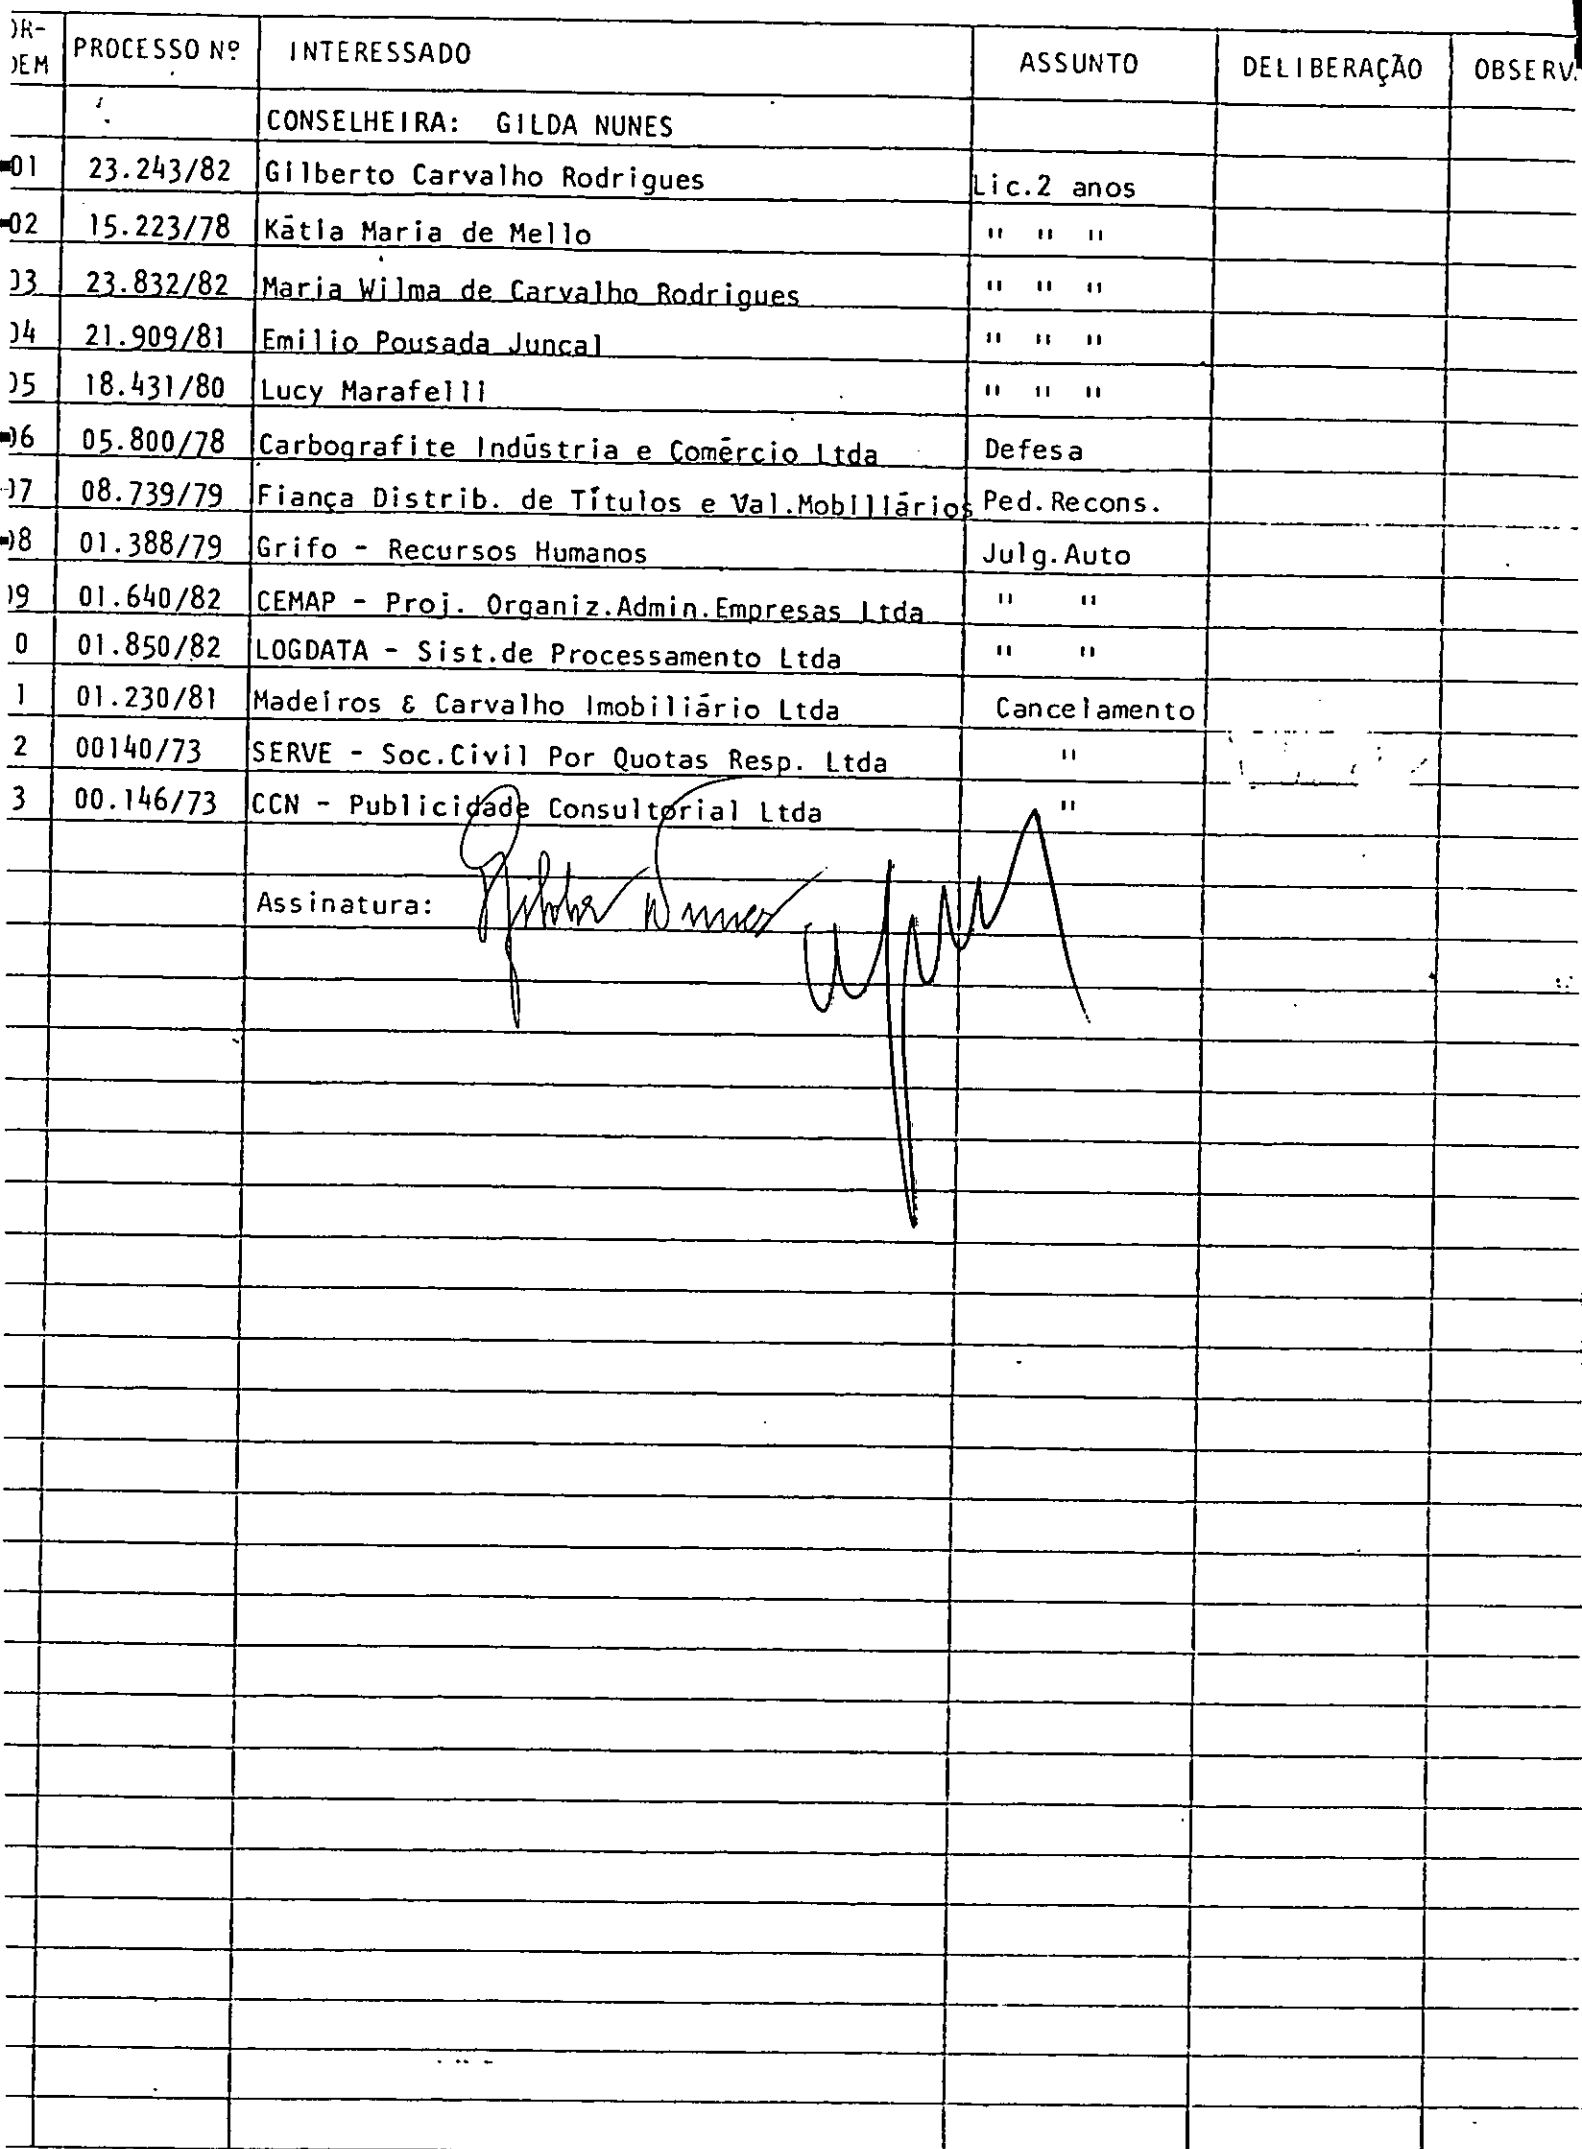 OR-
DEM PROCESSO Nº INTERESSADO ASSUNTO DELIBERAÇÃO OBSERV.
CONSELHEIRA: GILDA NUNES
01 23.243/82 Gilberto Carvalho Rodrigues Lic.2 anos
02 15.223/78 Kátia Maria de Mello " " "
03 23.832/82 Maria Wilma de Carvalho Rodrigues " " "
04 21.909/81 Emilio Pousada Juncal " " "
05 18.431/80 Lucy Marafelli " " "
06 05.800/78 Carbografite Indústria e Comércio Ltda Defesa
07 08.739/79 Fiança Distrib. de Títulos e Val.Mobiliários Ped.Recons.
08 01.388/79 Grifo - Recursos Humanos Julg.Auto
09 01.640/82 CEMAP - Proj. Organiz.Admin.Empresas Ltda " "
0 01.850/82 LOGDATA - Sist.de Processamento Ltda " "
1 01.230/81 Madeiros & Carvalho Imobiliário Ltda Cancelamento
2 00140/73 SERVE - Soc.Civil Por Quotas Resp. Ltda "
3 00.146/73 CCN - Publicidade Consultorial Ltda "
Assinatura: Gilda Nunes